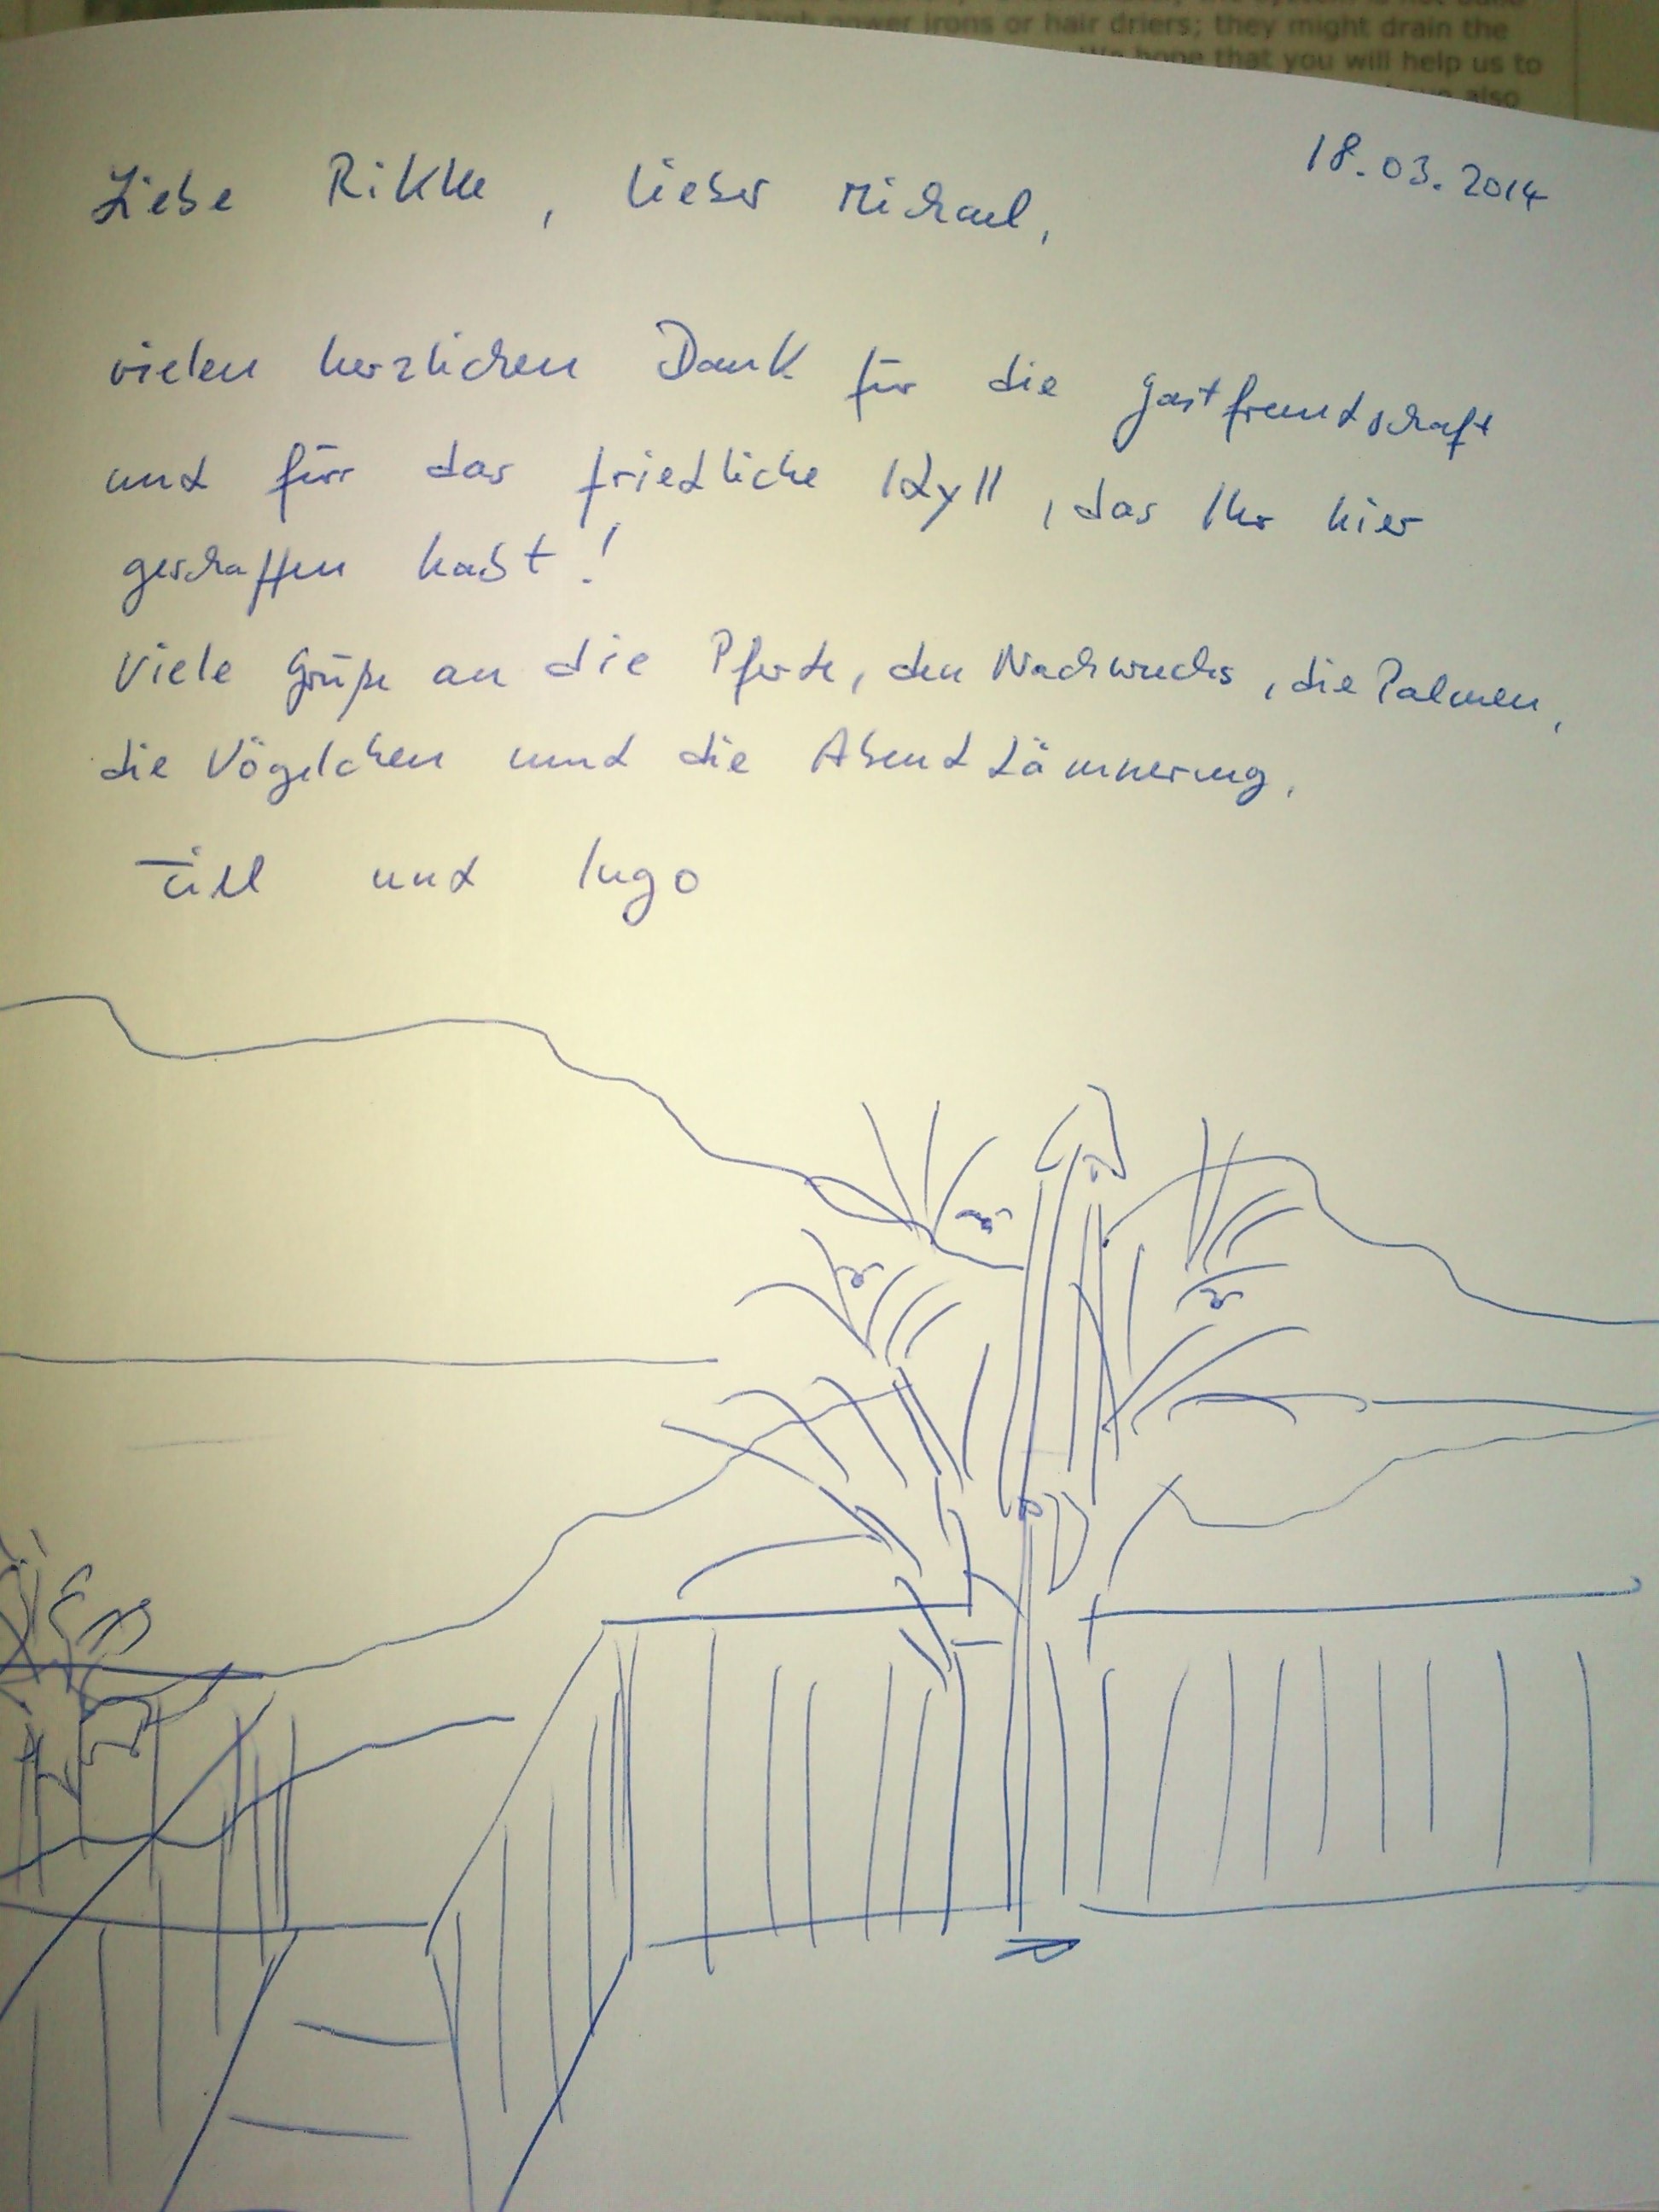 for high power irons or hair driers; they might drain the
We hope that you will help us to
also
18.03.2014
Liebe Rikke, lieber Michael,
vielen herzlichen Dank für die Gastfreundschaft
und für das friedliche Idyll, das Ihr hier
geschaffen habt!
Viele Grüße an die Pferde, den Nachwuchs, die Palmen,
die Vögelchen und die Abenddämmerung,
Till und Ingo